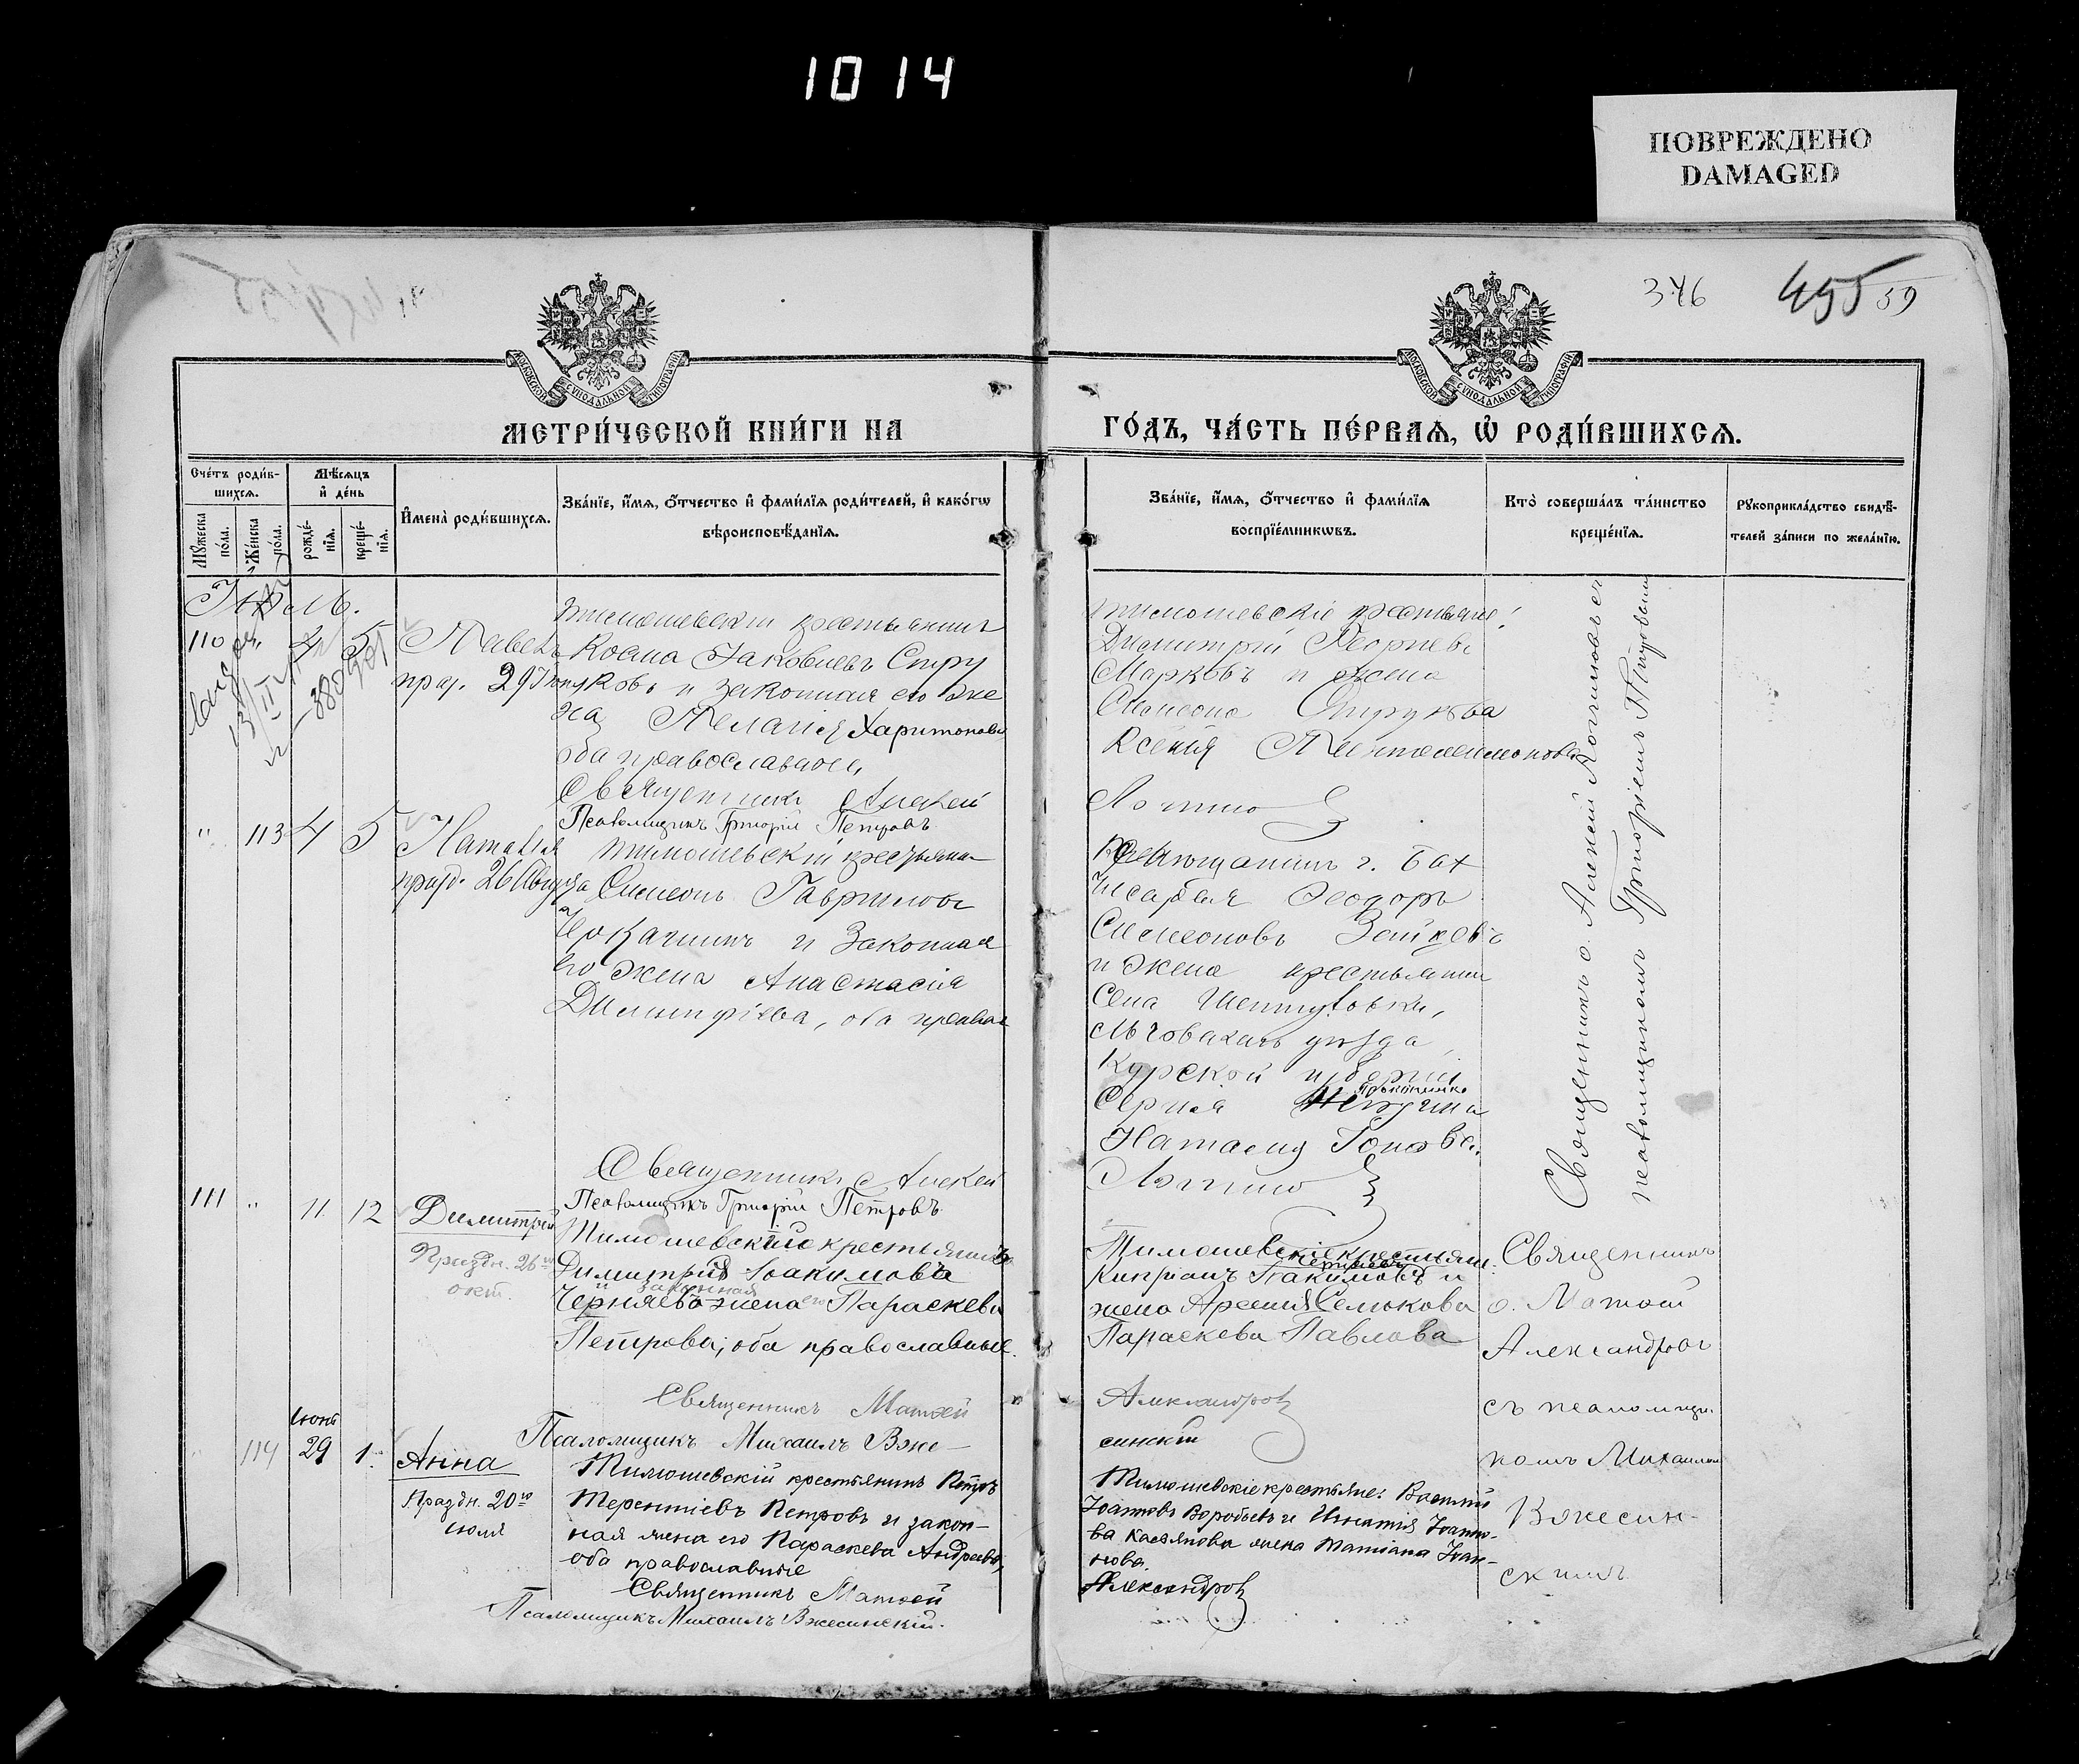 1014
ПОВРЕЖДЕНО
DAMAGED
346
495
59
МОСКОВСКОЙ СУНОДАЛЬНОЙ ТИПОГРАФІИ
МОСКОВСКОЙ СУНОДАЛЬНОЙ ТИПОГРАФІИ
МЕТРИ́ЧЕСКОЙ КНИ́ГИ НА
ГО́ДЪ, ЧА́СТЬ ПЕ́РВАѦ, Ѡ҆ РОДИ́ВШИХСѦ.
Сче́тъ роди́в-
шихсѧ.
Мꙋ́жеска по́ла.
Же́нска по́ла.
Мѣ́сѧцъ
и҆ де́нь
рожде́-
нїѧ.
креще́-
нїѧ.
И҆мена̀ роди́вшихсѧ.
Зва́нїе, и҆́мѧ, ѻ҆́тчество и҆ фами́лїѧ роди́телей, и҆ како́гѡ
вѣроисповѣ́данїѧ.
Зва́нїе, и҆́мѧ, ѻ҆́тчество и҆ фами́лїѧ
воспрїе́мникѡвъ.
Кто̀ соверша́лъ та́инство
креще́нїѧ.
Рꙋкоприкла́дство свидѣ́-
телей за́писи по жела́нїю.
Іюль.
110 " 4 5
Павелъ
праз. 29 Іюня
Тимошевскій крестьянинъ
Косма Іаковлевъ Стру
ковъ и законная его же
на Пелагія Харитонова
оба православные
Священникъ Алексей
Псаломщикъ Григорій Петровъ
Тимошевскіе крестьяне:
Димитрій Георгіевъ
Марковъ и жена
Симеона Струкова
Ксенія Пантелеимонова
Логино
Священникъ о. Алексей Логиновъ съ
псаломщикомъ Григоріемъ Петровымъ
" 113 4 5
Наталія
празд. 26 Августа
Тимошевскій крестьянин
Симеонъ Гавриловъ
и Законная
его жена Анастасія
Димитріева, оба правос
Священникъ Алексей
Псаломщикъ Григорій Петровъ
г. Бах
чисарая Ѳеодоръ
Симеоновъ
и жена крестьянина
Села
уѣзда,
Курской губерніи
Сергія
Наталія
Логино
111 " 11 12
Димитрій
Праздн. 26го
окт.
Тимошевскій крестьянинъ
Димитрій Іоакимовъ
и законная
Черняевъ жена его Параскева
Петрова, оба православные.
Священникъ Матѳей
Псаломщикъ Михаилъ Вже-
Тимошевскіе крестьян.
Кипріанъ Іоакимовъ и
жена Арсенія Селюкова
Параскева Павлова
Александров
синскій
Священникъ
о. Матѳей
Александровъ
съ псаломщи-
комъ Михаилом
Вжесин-
скимъ
Іюнь
114 29 1.
Анна
Праздн. 20го
іюля
Тимошевскій крестьянинъ Петръ
Терентіевъ Петровъ и закон-
ная жена его Параскева Андреева,
оба православные
Священникъ Матѳей
Псаломщикъ Михаилъ Вжесинскій.
Тимошевскіе крестьяне: Василій
Іоанновъ Воробьевъ и Игнатія Іоанно-
ва Касьянова жена Татіана Іоан-
нова
Александров